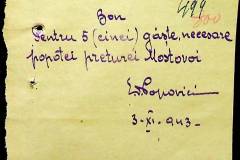 Bon
Pentru 5 (cinci) gâște, necesare
popotei preturei Mostovoi
Popovici
3-XI-943-